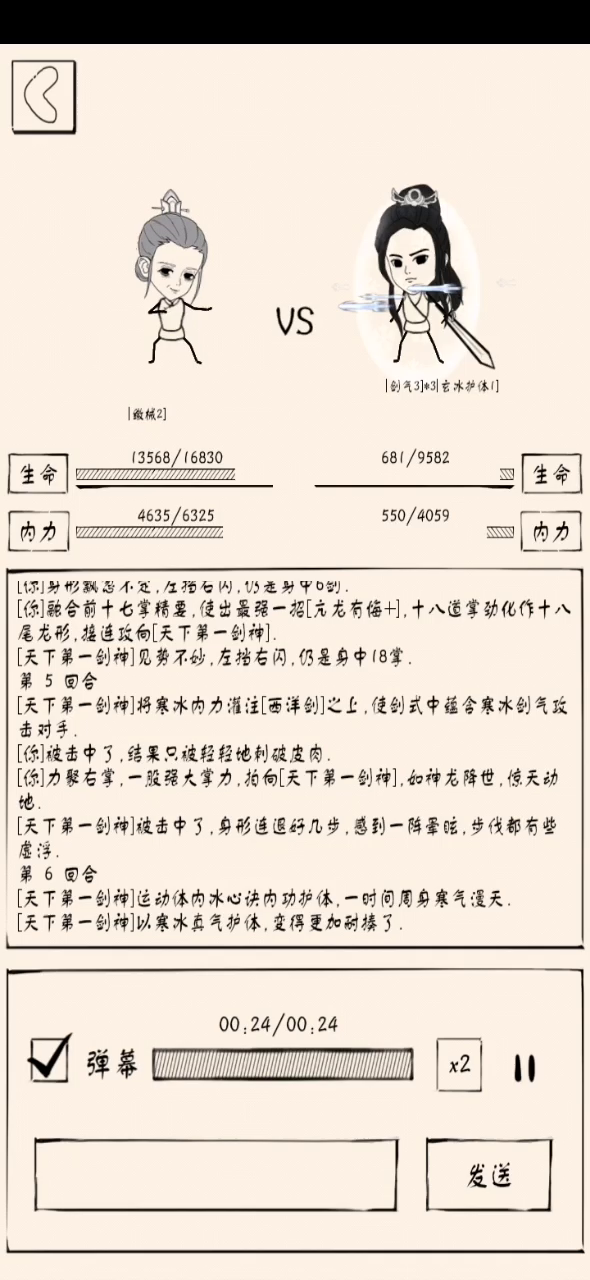 VS
|剑气3]*3|玄冰护体1]
|缴械2]
生命 13568/16830 681/9582 生命
内力 4635/6325 550/4059 内力
[你]身形飘忽不定,左挡右闪,仍是身中6剑.
[你]融合前十七掌精要,使出最强一招[亢龙有悔+],十八道掌劲化作十八
尾龙形,接连攻向[天下第一剑神].
[天下第一剑神]见势不妙,左挡右闪,仍是身中18掌.
第 5 回合
[天下第一剑神]将寒冰内力灌注[西洋剑]之上,使剑式中蕴含寒冰剑气攻
击对手.
[你]被击中了,结果只被轻轻地刺破皮肉.
[你]力聚右掌,一股强大掌力,拍向[天下第一剑神],如神龙降世,惊天动
地.
[天下第一剑神]被击中了,身形连退好几步,感到一阵晕眩,步伐都有些
虚浮.
第 6 回合
[天下第一剑神]运动体内冰心诀内功护体,一时间周身寒气漫天.
[天下第一剑神]以寒冰真气护体,变得更加耐揍了.
00:24/00:24
弹幕 x2
发送